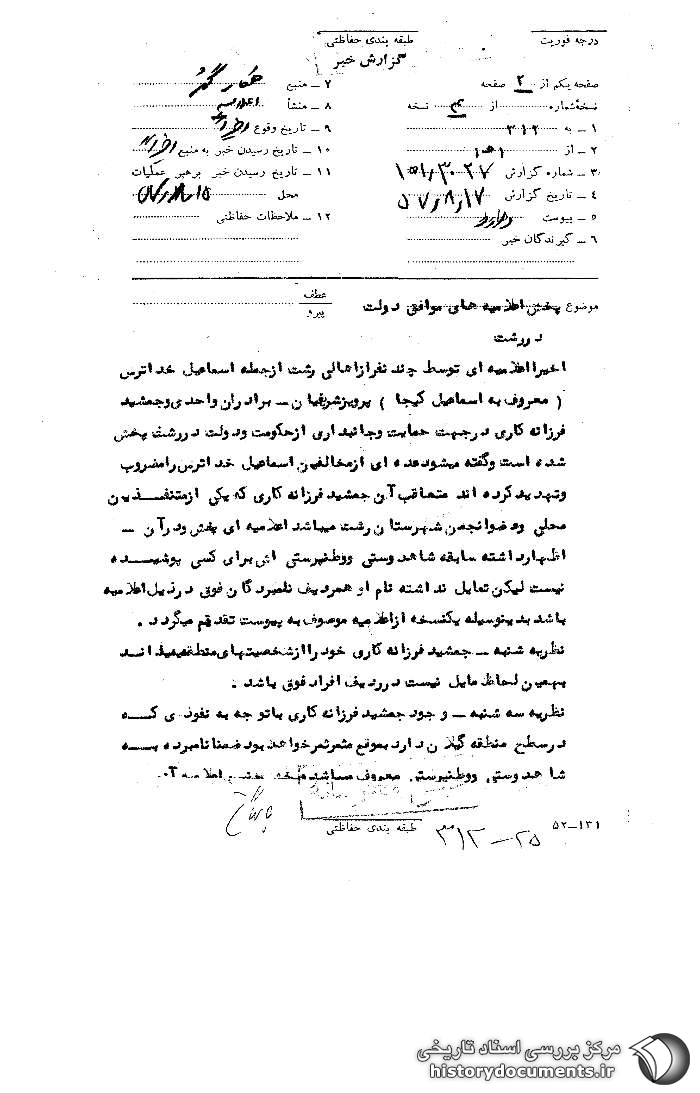 درجه فوریت
طبقه بندی حفاظتی
گزارش خبر
صفحه یکم از ۲ صفحه
نسخه‌شماره از نسخه
۱ ـ به ۳۱۲
۲ ـ از
۳ ـ شماره گزارش
۴ ـ تاریخ گزارش ۵۷٫۸٫۱۷
۵ ـ پیوست دارد
۶ ـ گیرندگان خبر
۷ ـ منبع همکار
۸ ـ منشأ اعلامیه
۹ ـ تاریخ وقوع اخیراً
۱۰ ـ تاریخ رسیدن خبر به منبع اخیراً
۱۱ ـ تاریخ رسیدن خبر برهبر عملیات
محل
۱۲ ـ ملاحظات حفاظتی
موضوع پخش اعلامیه های موافق دولت
در رشت
عطف
پیرو
اخیرا اعلامیه ای توسط چند نفر از اهالی رشت از جمله اسماعیل خدا ترس
( معروف به اسماعیل کیجا ) پرویز شریفیان ـ برادران واحدی و جمشید
فرزانه کاری در جهت حمایت و جانبداری از حکومت و دولت در رشت پخش
شده است و گفته میشود عده ای از مخالفین اسماعیل خدا ترس را مضروب
و تهدید کرده اند متعاقب آن جمشید فرزانه کاری که یکی از متنفذین
محلی و عضو انجمن شهرستان رشت میباشد اعلامیه ای پخش و در آن ـ
اظهار داشته سابقه شاهدوستی و وطنپرستی اش برای کسی پوشیده
نیست لیکن تمایل نداشته نام او همردیف نامبردگان فوق در ذیل اعلامیه
باشد بدینوسیله یکنسخه از اعلامیه موصوف به پیوست تقدیم میگردد .
نظریه شنبه ـ جمشید فرزانه کاری خود را از شخصیتهای منطقه میداند
بهمین لحاظ مایل نیست در ردیف افراد فوق باشد .
نظریه سه شنبه ـ وجود جمشید فرزانه کاری با توجه به نفوذی که
در سطح منطقه گیلان دارد بموقع مثمر ثمر خواهد بود ضمنا نامبرده به
شاهدوستی و وطنپرستی معروف میباشد
طبقه بندی حفاظتی
۵۲ـ۱۳۱
مرکز بررسی اسناد تاریخی
historydocuments.ir